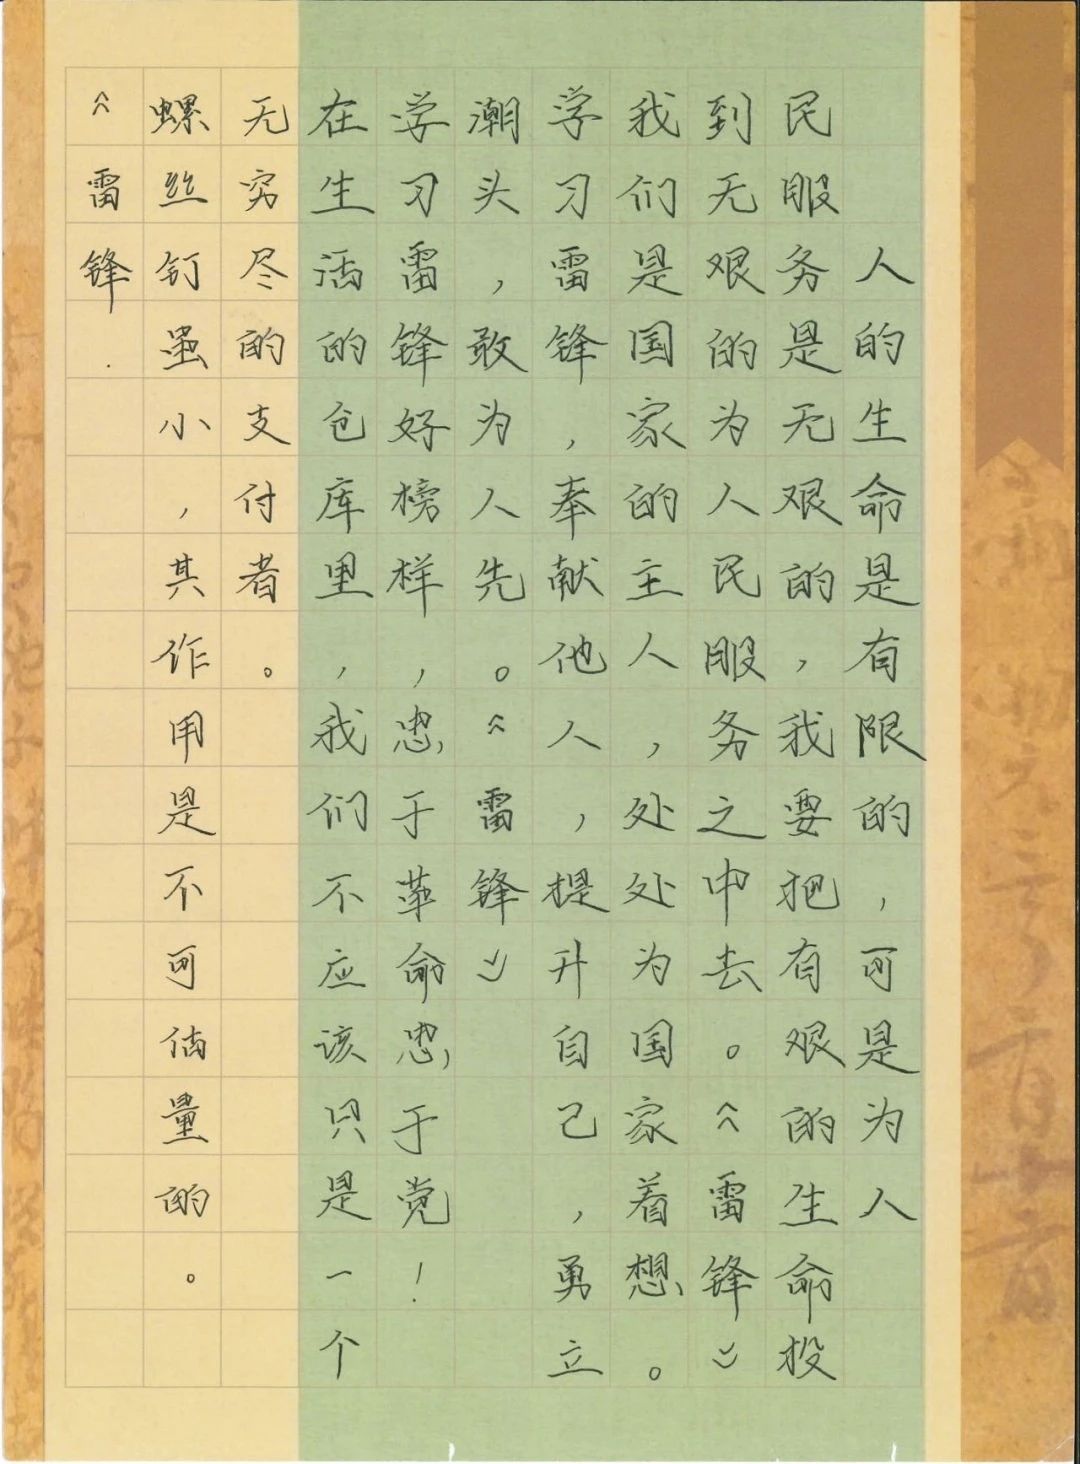 人的生命是有限的，可是为人
民服务是无艰的，我要把有艰的生命投
到无艰的为人民服务之中去。︽雷锋︾
我们是国家的主人，处处为国家着想。
学习雷锋，奉献他人，提升自己，勇立
潮头，敢为人先。︽雷锋︾
学习雷锋好榜样，忠于革命忠于党！
在生活的仓库里，我们不应该只是一个
无穷尽的支付者。
螺丝钉虽小，其作用是不可估量的。
︽雷锋.